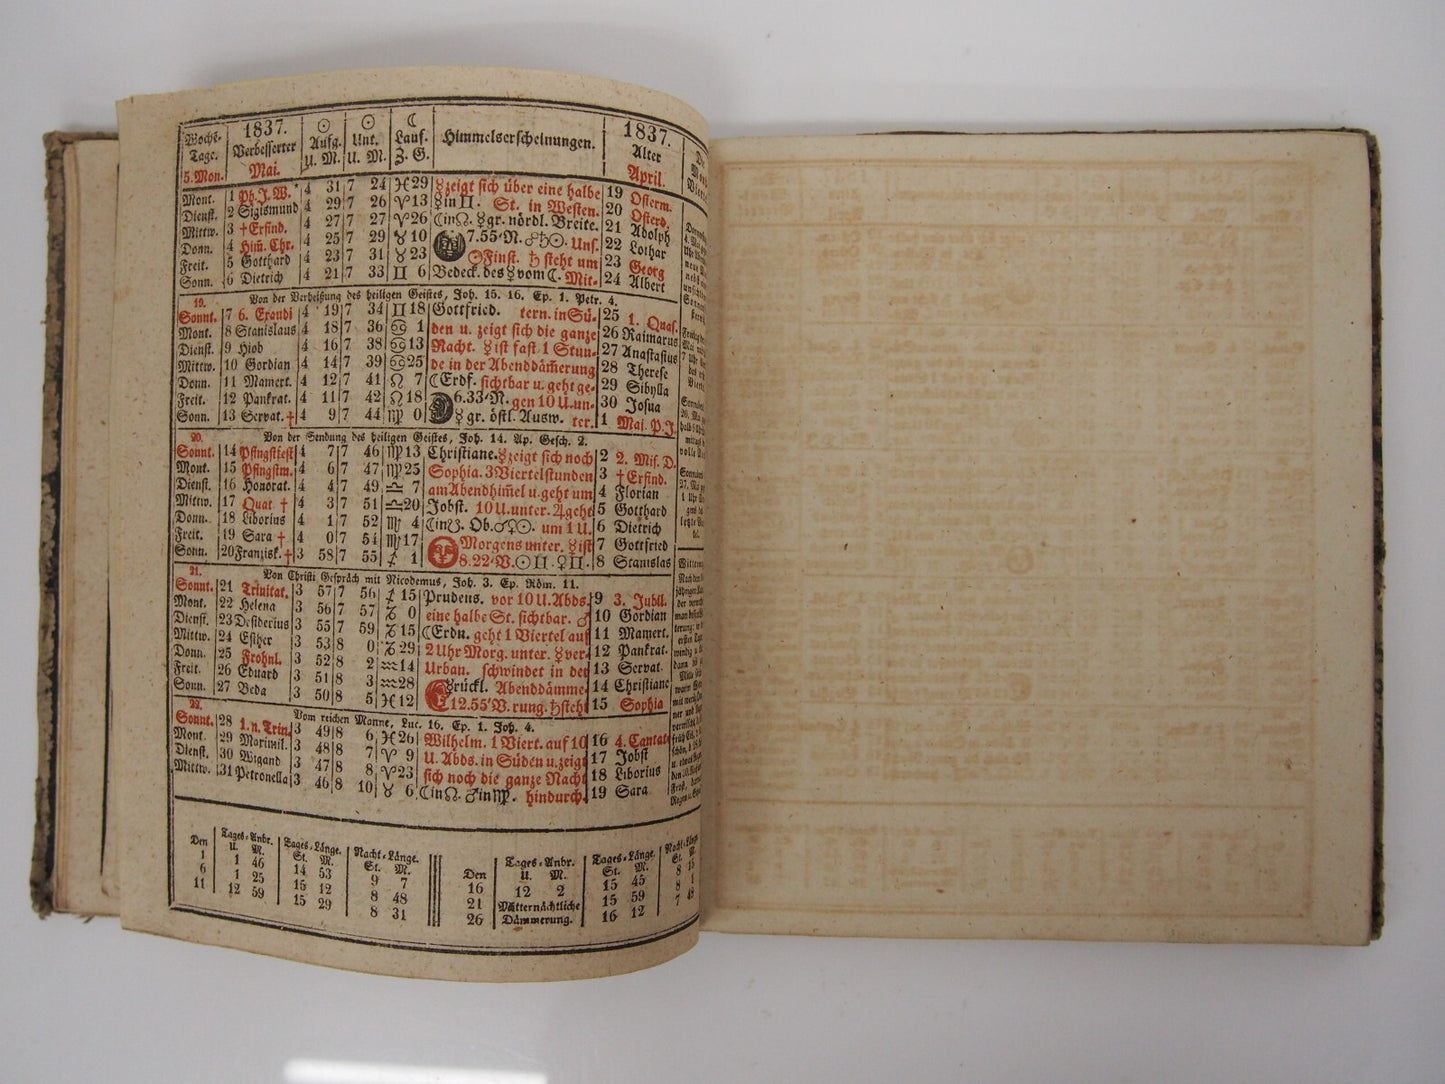 Woche- 1837. ☉ ☉ ☾ Himmelserscheinungen. 1837.
Tage. Verbesserter Aufg. Unt. Lauf. Alter
5. Mon. Mai. U. M. U. M. Z. G. April.
Mont. 1 Ph. J. W. 4 31 7 24 ♓ 29 ☿ zeigt sich über eine halbe 19 Osterm.
Dienst. 2 Sigismund 4 29 7 26 ♈ 13 ☿ in ♊. St. in Westen. 20 Osterd.
Mittw. 3 † Erfind. 4 27 7 27 ♈ 26 ☾ in ☊. ☿ gr. nördl. Breite. 21 Adolph
Donn. 4 Him̄. Chr. 4 25 7 29 ♉ 10 7.55' N. ☌ ♄ ☉. Uns. 22 Lothar
Freit. 5 Gotthard 4 23 7 31 ♉ 23 ☉ Finst. ♄ steht um 23 Georg
Sonn. 6 Dietrich 4 21 7 33 ♊ 6 Bedeck. des ☿ vom ☾. Mit- 24 Albert
19. Von der Verheißung des heiligen Geistes, Joh. 15. 16. Ep. 1. Petr. 4.
Sonnt. 7 6. Exaudi 4 19 7 34 ♊ 18 Gottfried. tern. in Sü- 25 1. Quas.
Mont. 8 Stanislaus 4 18 7 36 ♋ 1 den u. zeigt sich die ganze 26 Raimarus
Dienst. 9 Hiob 4 16 7 38 ♋ 13 Nacht. ☿ ist fast 1 Stun- 27 Anastasius
Mittw. 10 Gordian 4 14 7 39 ♋ 25 de in der Abenddäm̄erung 28 Therese
Donn. 11 Mamert. 4 12 7 41 ♌ 7 ☾ Erdf. sichtbar u. geht ge- 29 Sibylla
Freit. 12 Pankrat. 4 11 7 42 ♌ 18 6.33' N. gen 10 U. un- 30 Josua
Sonn. 13 Servat. † 4 9 7 44 ♍ 0 ☿ gr. östl. Ausw. ter. 1 Mai. P. J.
20. Von der Sendung des heiligen Geistes, Joh. 14. Ap. Gesch. 2.
Sonnt. 14 Pfingstfest 4 7 7 46 ♍ 13 Christiane. ☿ zeigt sich noch 2 2. Mis. D.
Mont. 15 Pfingstm. 4 6 7 47 ♍ 25 Sophia. 3 Viertelstunden 3 † Erfind.
Dienst. 16 Honorat. 4 4 7 49 ♎ 7 am Abendhim̄el u. geht um 4 Florian
Mittw. 17 Quat † 4 3 7 51 ♎ 20 Jobst. 10 U. unter. ♃ geht 5 Gotthard
Donn. 18 Liborius 4 1 7 52 ♏ 4 ☾ in ☋. Ob. ☌ ♀ ☉. um 1 U. 6 Dietrich
Freit. 19 Sara † 4 0 7 54 ♏ 17 Morgens unter. ☿ ist 7 Gottfried
Sonn. 20 Franzisk. † 3 58 7 55 ♐ 1 8.22' V. ☉ ♊. ♀ ♊. 8 Stanislas
21. Von Christi Gespräch mit Nicodemus, Joh. 3. Ep. Röm. 11.
Sonnt. 21 Trinitat. 3 57 7 56 ♐ 15 Prudens. vor 10 U. Abds. 9 3. Jubil.
Mont. 22 Helena 3 56 7 57 ♑ 0 eine halbe St. sichtbar. ♂ 10 Gordian
Dienst. 23 Desiderius 3 55 7 59 ♑ 15 ☾ Erdn. geht 1 Viertel auf 11 Mamert.
Mittw. 24 Esther 3 53 8 0 ♑ 29 2 Uhr Morg. unter. ☿ ver- 12 Pankrat.
Donn. 25 Frohnl. 3 52 8 2 ♒ 14 Urban. schwindet in der 13 Servat.
Freit. 26 Eduard 3 51 8 3 ♒ 28 ☿ rückl. Abenddämme- 14 Christiane
Sonn. 27 Beda 3 50 8 5 ♓ 12 12.55' V. rung. ♄ steht 15 Sophia
22. Vom reichen Manne, Luc. 16. Ep. 1. Joh. 4.
Sonnt. 28 1. n. Trin. 3 49 8 6 ♓ 26 Wilhelm. 1 Viert. auf 10 16 4. Cantate
Mont. 29 Maximil. 3 48 8 7 ♈ 9 U. Abds. in Süden u. zeigt 17 Jobst
Dienst. 30 Wigand 3 47 8 8 ♈ 23 sich noch die ganze Nacht 18 Liborius
Mittw. 31 Petronella 3 46 8 10 ♉ 6 ☾ in ☊. ♂ in ♍. hindurch. 19 Sara
Den Tages-Anbr. Tages-Länge. Nacht-Länge.
U. M. St. M. St. M.
1 1 46 14 53 9 7
6 1 25 15 12 8 48
11 12 59 15 29 8 31
Den Tages-Anbr. Tages-Länge. Nacht-Länge
U. M. St. M. St. M.
16 12 2 15 45 8 15
21 Mitternächtliche 15 59 8 1
26 Dämmerung. 16 12 7 48